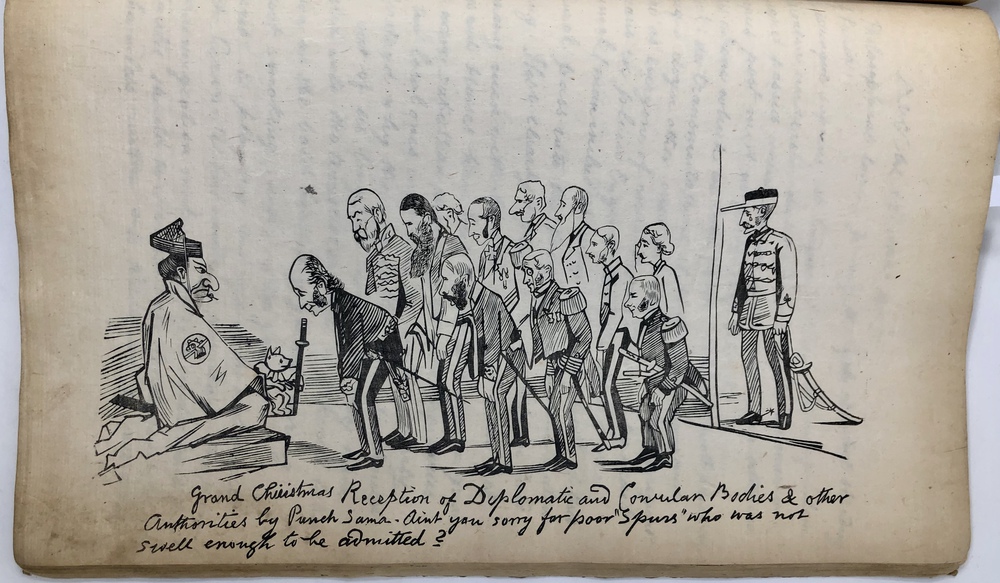 Grand Christmas Reception of Diplomatic and Consular Bodies & other
Authorities by Punch Sama - Aint you sorry for poor "Spurs" who was not
swell enough to be admitted?